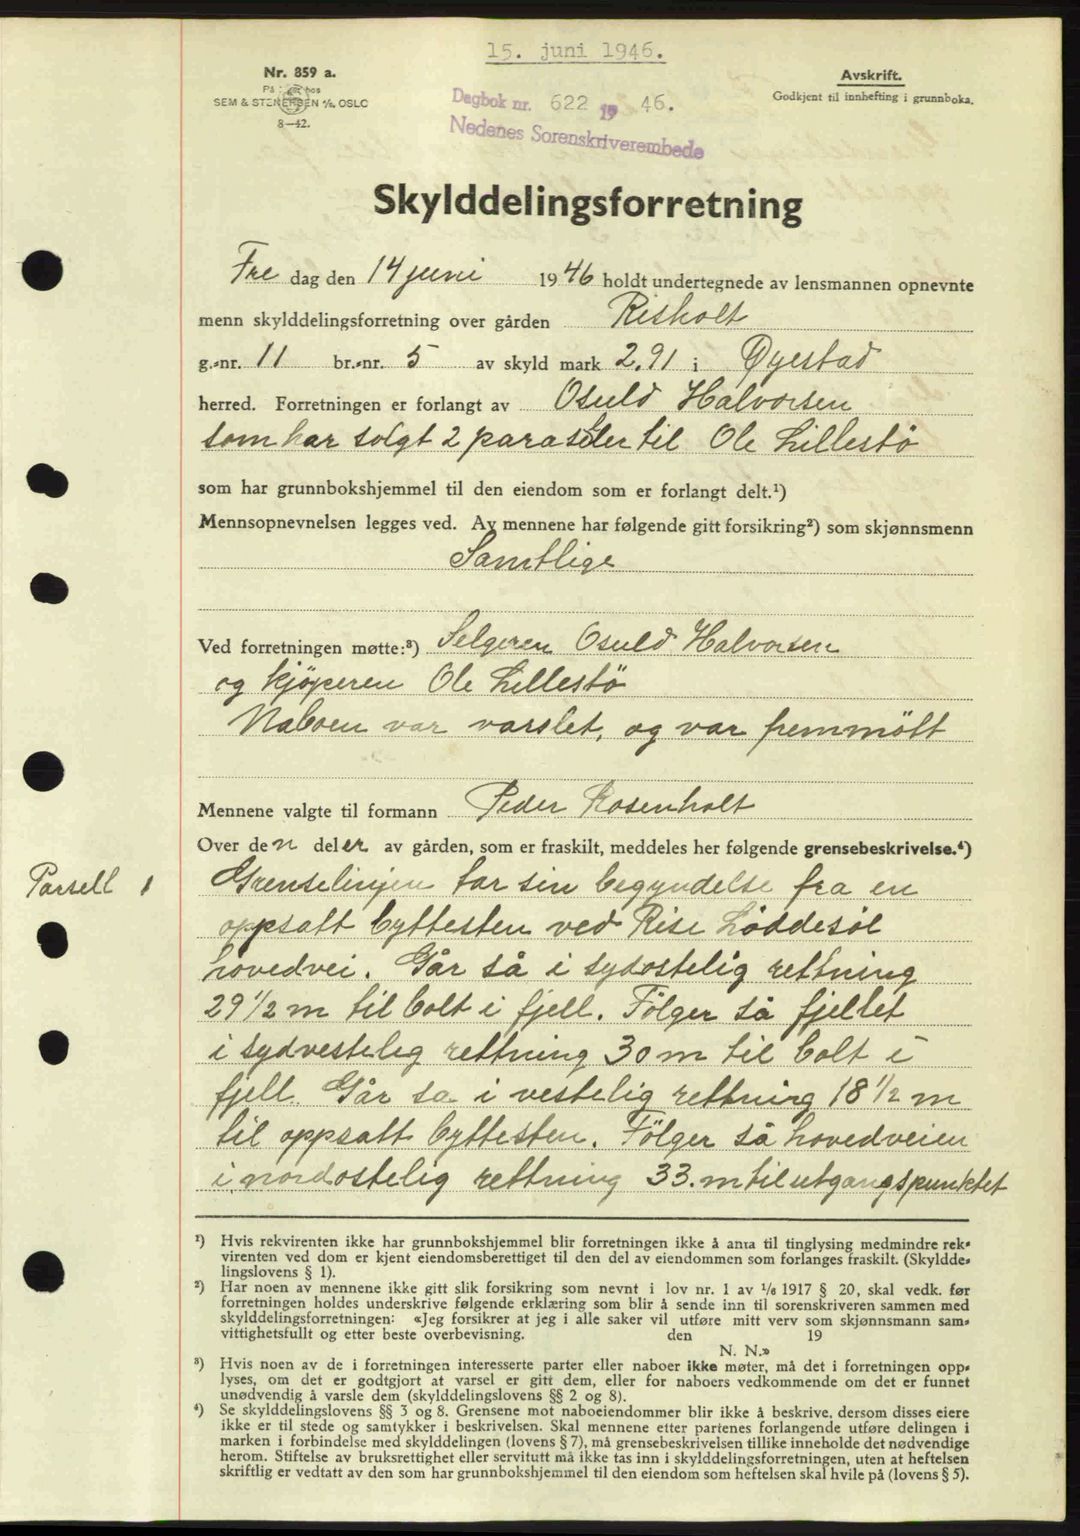 15. juni 1946.
Nr. 859 a.
På
SEM & STENERSEN A/S, OSLO
8—42.
Avskrift.
Godkjent til innhefting i grunnboka.
Dagbok nr. 622 19 46.
Nedenes Sorenskriverembede
Skylddelingsforretning
Fre dag den 14 juni 1946 holdt undertegnede av lensmannen opnevnte
menn skylddelingsforretning over gården Risholt
g.-nr. 11 br.-nr. 5 av skyld mark 2,91 i Øyestad
herred. Forretningen er forlangt av Osuld Halvorsen
som har solgt 2 til Ole Lillestö
som har grunnbokshjemmel til den eiendom som er forlangt delt.¹)
Mennsopnevnelsen legges ved. Av mennene har følgende gitt forsikring²) som skjønnsmenn
Samtlige
Ved forretningen møtte:³) Selgeren Osuld Halvorsen
og kjöperen Ole Lillestö
Naboen var varslet, og var fremmölt
Mennene valgte til formann Peder Rosenholt
Over den deler av gården, som er fraskilt, meddeles her følgende grensebeskrivelse.⁴)
Parsell 1
Grenselinjen tar sin begyndelse fra en
oppsatt byttesten ved Rise Löddesöl
hovedvei. Går så i sydostelig rettning
29 1/2 m til bolt i fjell. Fölger så fjellet
i sydvestelig rettning 30 m til bolt i
fjell. Går sa i vestelig rettning 18 1/2 m
til oppsatt byttesten. Fölger så hovedveien
i nordostelig rettning 33. m til utgangspunktet
¹) Hvis rekvirenten ikke har grunnbokshjemmel blir forretningen ikke å anta til tinglysing medmindre rek-
virenten ved dom er kjent eiendomsberettiget til den del av eiendommen som forlanges fraskilt. (Skyldde-
lingslovens § 1).
²) Har noen av mennene ikke gitt slik forsikring som nevnt i lov nr. 1 av 1/6 1917 § 20, skal vedk. før
forretningen holdes underskrive følgende erklæring som blir å sende inn til sorenskriveren sammen med
skylddelingsforretningen: «Jeg forsikrer at jeg i alle saker vil utføre mitt verv som skjønnsmann sam-
vittighetsfullt og etter beste overbevisning. den 19
N. N.»
³) Hvis noen av de i forretningen interesserte parter eller naboer ikke møter, må det i forretningen opp-
lyses, om det er godtgjort at varsel er gitt dem, eller for naboers vedkommende om det er funnet
unødvendig å varsle dem (skylddelingslovens §§ 2 og 8).
⁴) Se skylddelingslovens §§ 3 og 8. Grensene mot naboeiendommer blir ikke å beskrive, dersom disses eiere
ikke er til stede og samtykker i beskrivelsen. Skal mennene etter partenes forlangende utføre delingen i
marken i forbindelse med skylddelingen (lovens § 7), må grensebeskrivelsen tillike inneholde det nødvendige
herom. Stiftelse av bruksrettighet eller servitutt må ikke tas inn i skylddelingsforretningen, uten at heftelsen
skriftlig er vedtatt av den som har grunnbokshjemmel til den eiendom som heftelsen skal hvile på (lovens § 5).